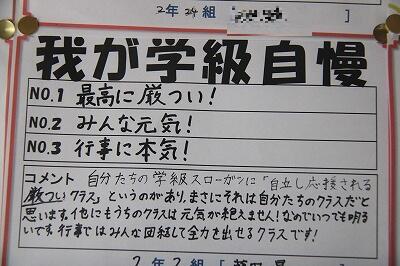 2年24組 ]
我が学級自慢
NO.1 最高に厳つい!
NO.2 みんな元気!
NO.3 行事に本気!
コメント 自分たちの学級スローガンに「自立し応援される
厳ついクラス」というのがあり、まさにそれは自分たちのクラスだと
思います。他にもうちのクラスは元気が絶えません!なのでいつでも明る
いです。行事ではみんな団結して全力を出せるクラスです!
2年2組 [